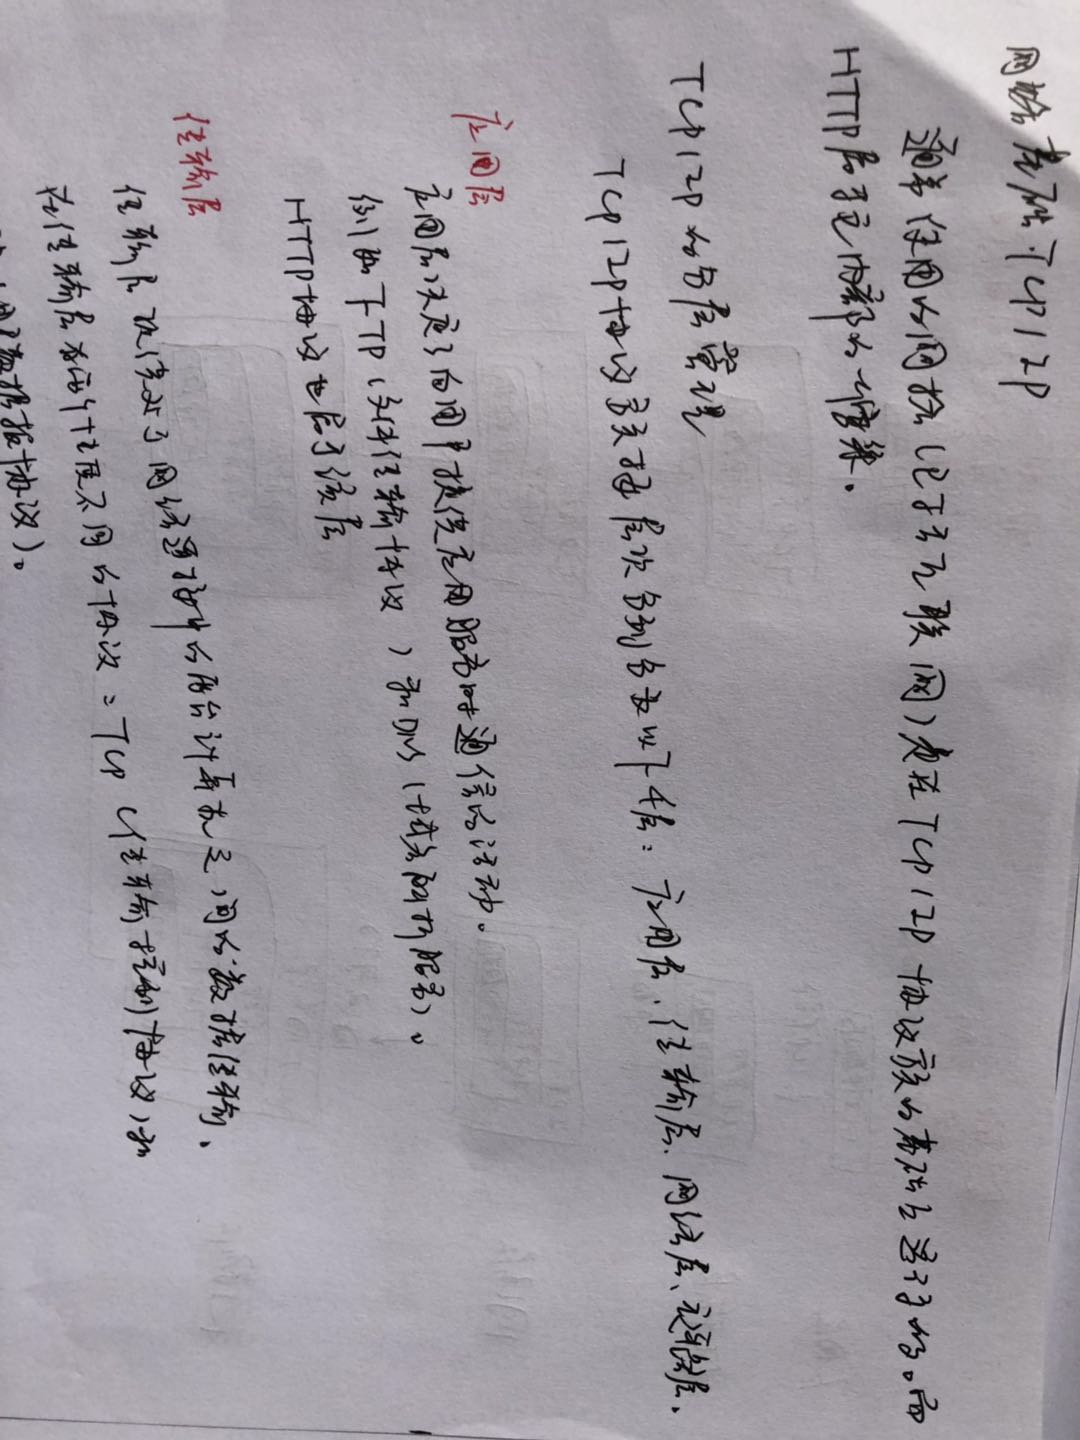 网络基础 TCP/IP
通常使用的网络(包含互联网)是在TCP/IP协议族的基础上运行的。而
HTTP属于它内部的一个子集。
TCP/IP的分层管理
TCP/IP协议族按层次分别分为以下4层：应用层、传输层、网络层、数据链路层。
应用层
应用层决定了向用户提供应用服务时通信的活动。
例如FTP(文件传输协议)和DNS(域名解析服务)。
HTTP协议也属于该层
传输层
传输层提供处于网络连接中的两台计算机之间的数据传输。
在传输层有两个性质不同的协议：TCP(传输控制协议)和
用户数据报协议)。